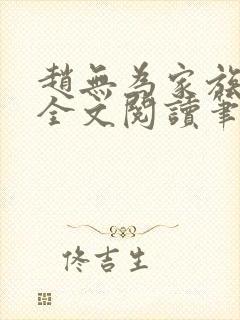 趙無為家族
全文閱讀筆
佟吉生